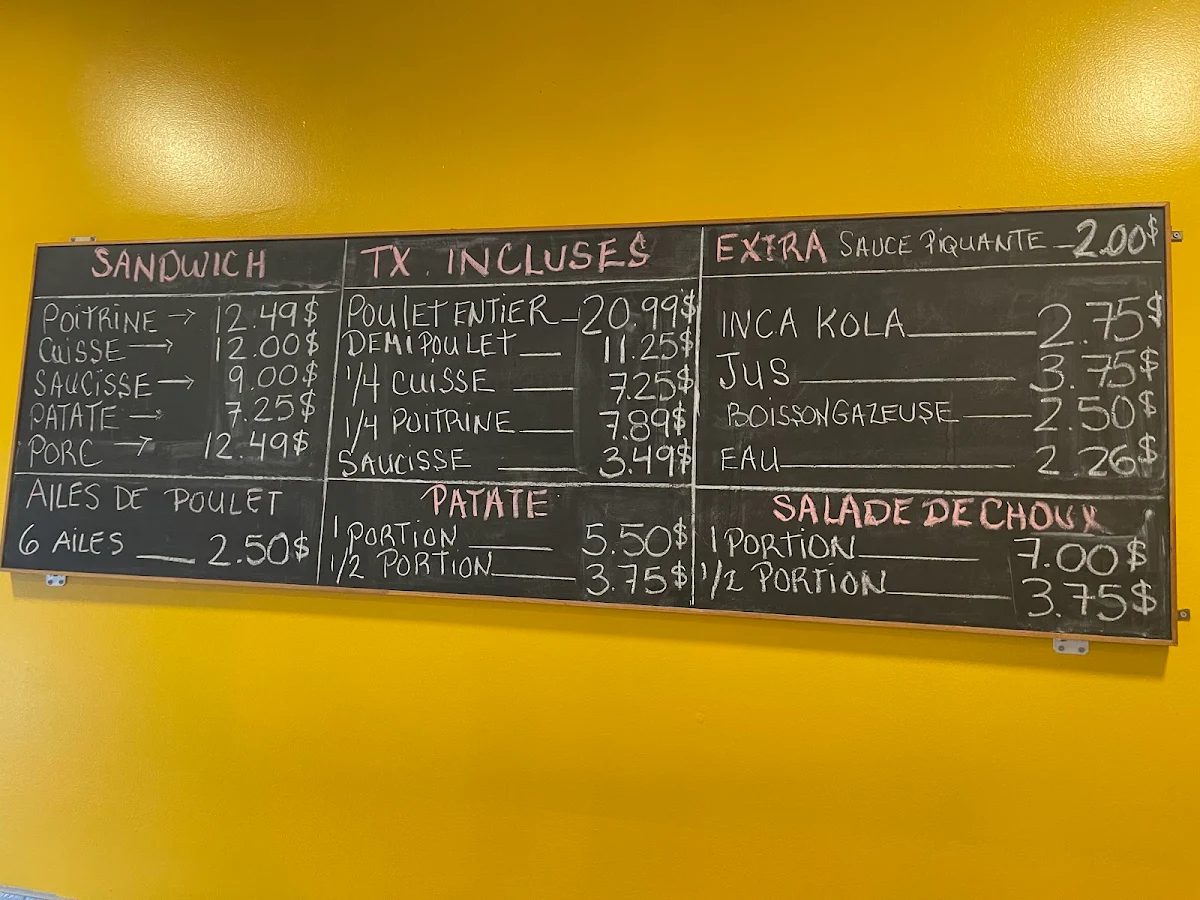 SANDWICH
POITRINE → 12.49$
CUISSE → 12.00$
SAUCISSE → 9.00$
PATATE → 7.25$
PORC → 12.49$
AILES DE POULET
6 AILES __ 2.50$
TX. INCLUSES
POULET ENTIER _ 20.99$
DEMI POULET __ 11.25$
1/4 CUISSE __ 7.25$
1/4 POITRINE __ 7.89$
SAUCISSE __ 3.49$
PATATE
1 PORTION __ 5.50$
1/2 PORTION __ 3.75$
EXTRA SAUCE PIQUANTE _ 2.00$
INCA KOLA __ 2.75$
JUS __ 3.75$
BOISSON GAZEUSE __ 2.50$
EAU __ 2.26$
SALADE DE CHOUX
1 PORTION __ 7.00$
1/2 PORTION __ 3.75$